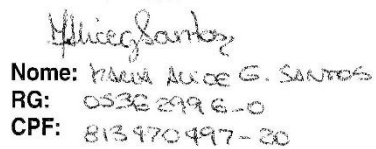 MAliceGSantos
Nome: MARIA ALICE G. SANTOS
RG: 05362996-0
CPF: 813970497-20